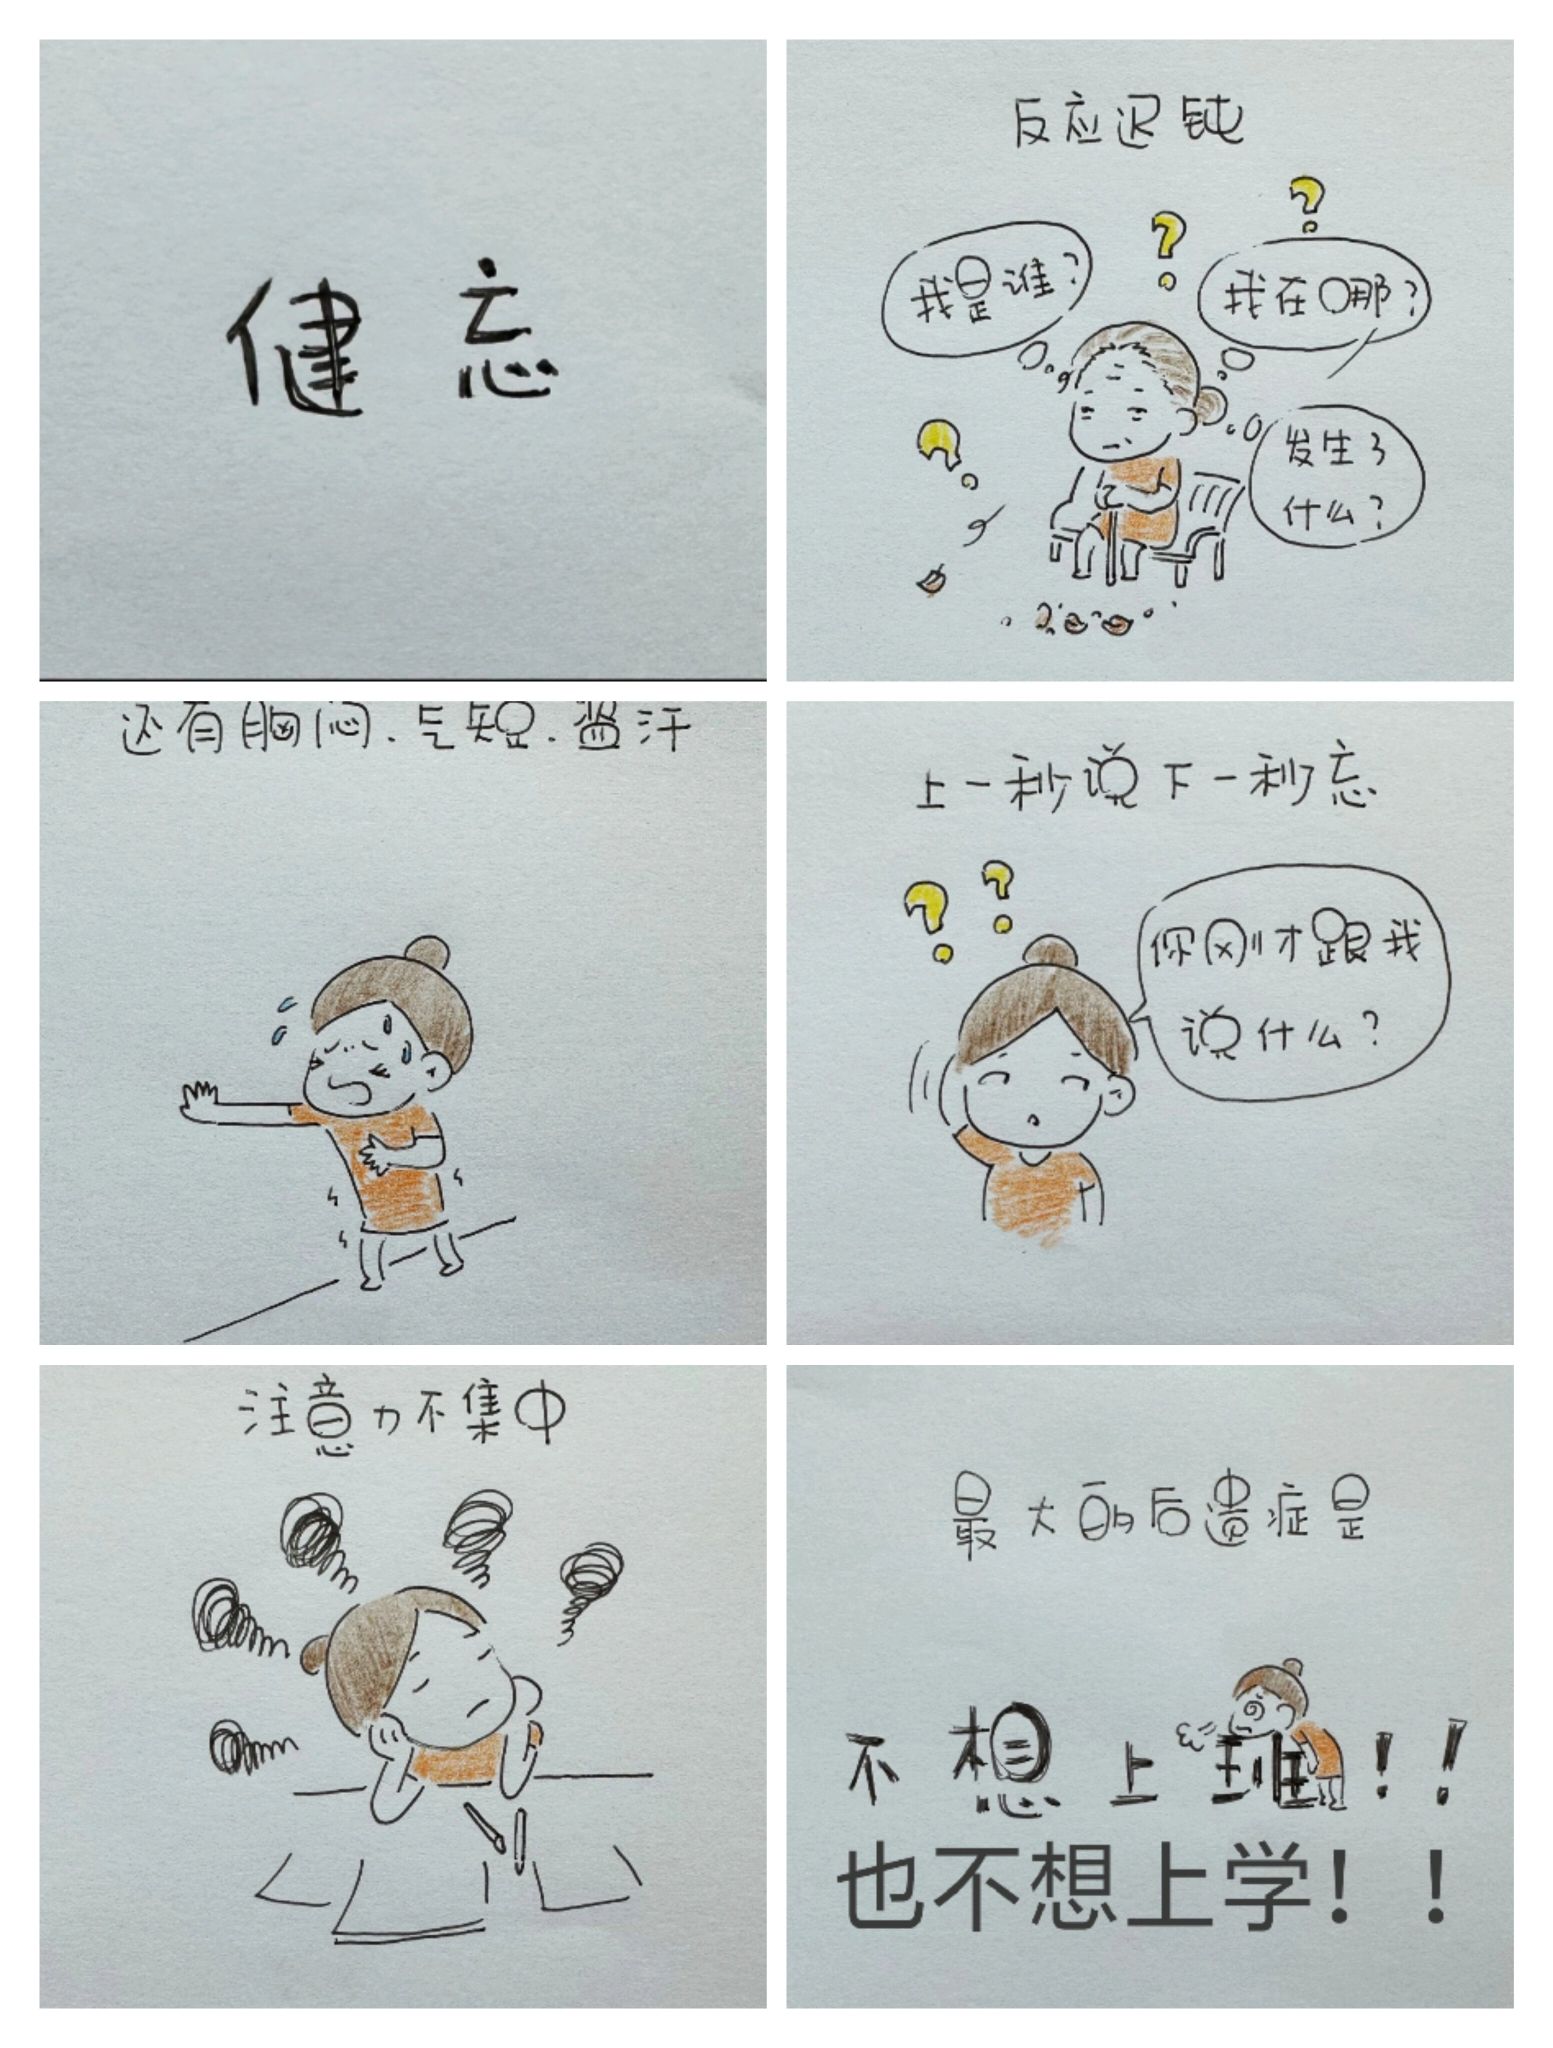 健忘
反应迟钝
我是谁？
我在哪？
发生了
什么？
还有胸闷.气短.盗汗
上一秒说下一秒忘
你刚才跟我
说什么？
注意力不集中
最大的后遗症是
不想上班！！
也不想上学！！